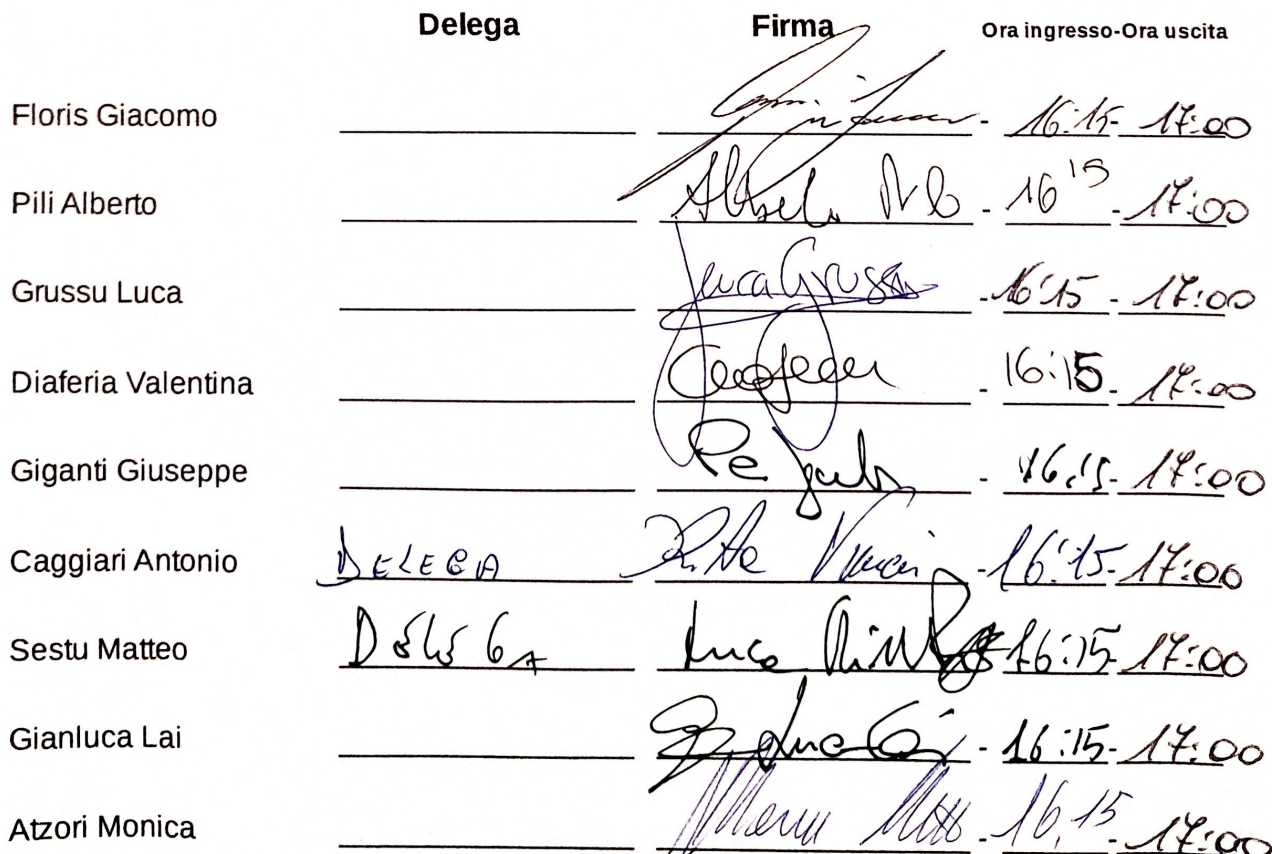 Delega Firma Ora ingresso-Ora uscita
Floris Giacomo - 16:15 - 17:00
Pili Alberto - 16 15 - 17:00
Grussu Luca Luca Grussu - 16:15 - 17:00
Diaferia Valentina - 16:15 - 17:00
Giganti Giuseppe - 16:15 - 17:00
Caggiari Antonio DELEGA Rita - 16:15 - 17:00
Sestu Matteo DELEGA Luca 16:15 - 17:00
Gianluca Lai - 16:15 - 17:00
Atzori Monica - 16,15 17:00